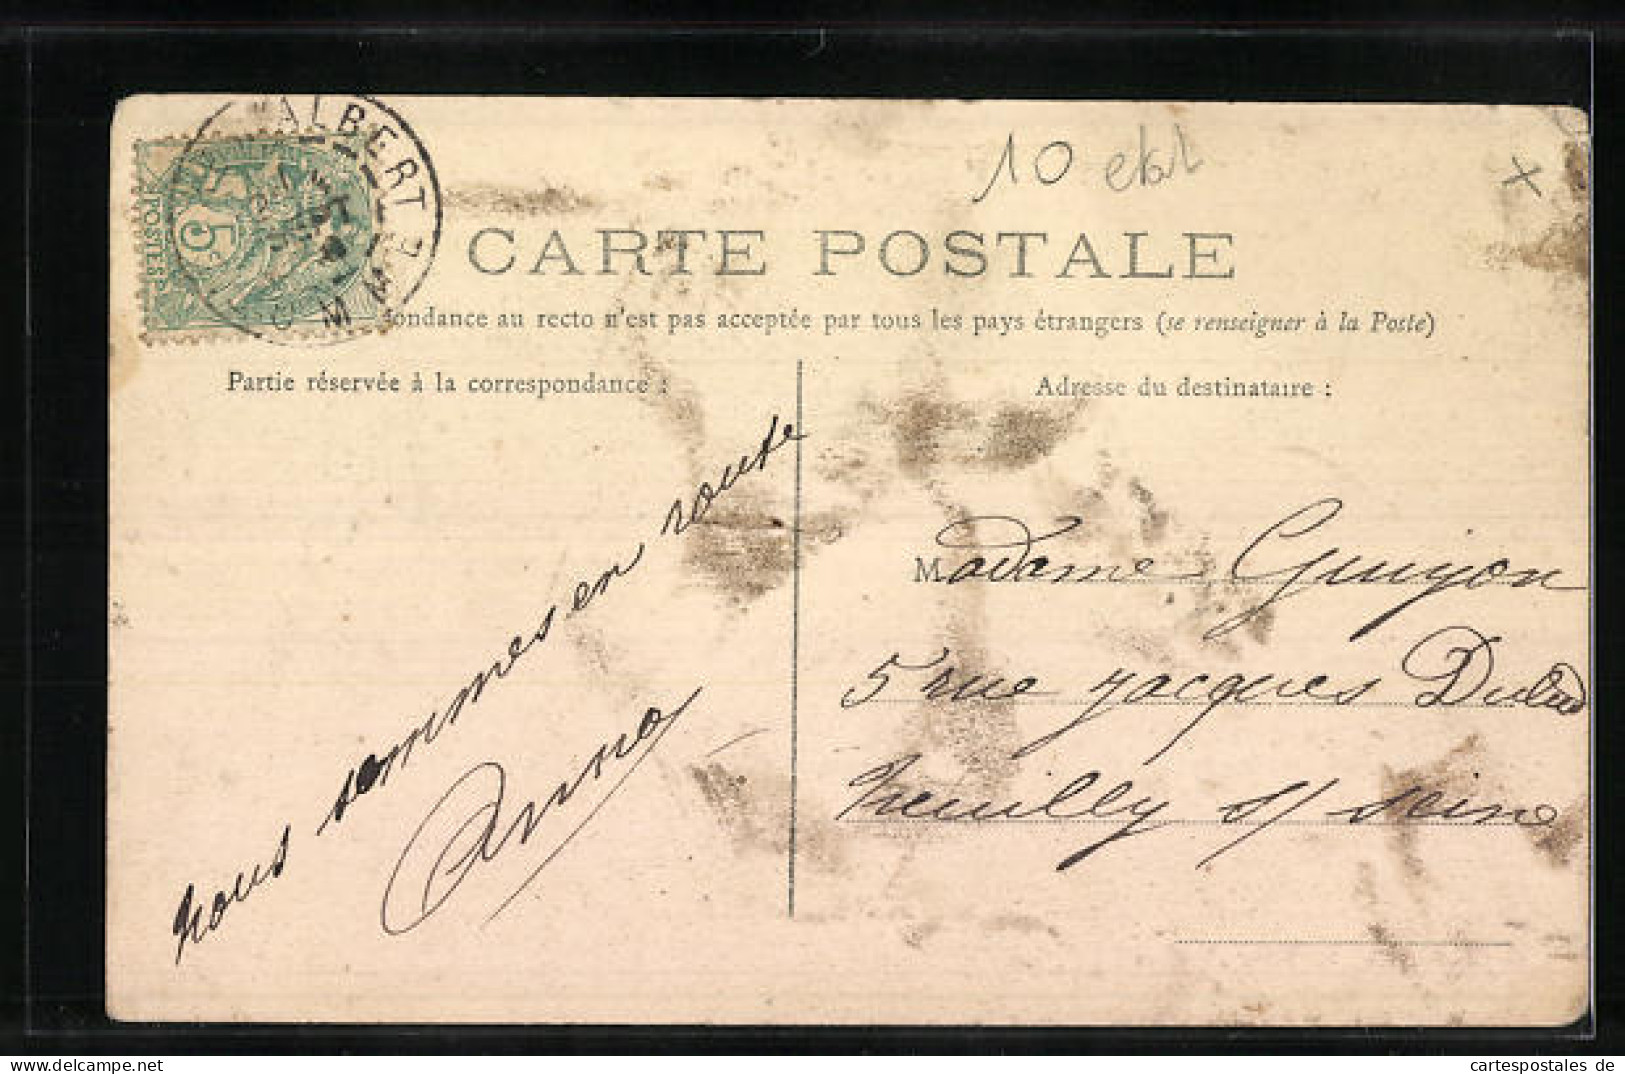 ALBERT
SOMME
POSTES
5
10 etat
x
CARTE POSTALE
ondance au recto n'est pas acceptée par tous les pays étrangers (se renseigner à la Poste)
Partie réservée à la correspondance :
Adresse du destinataire :
nous sommes en route
Anna
Madame Guuyon
5 rue Jacques Dulud
Neuilly s/ Seine
cartespostales de